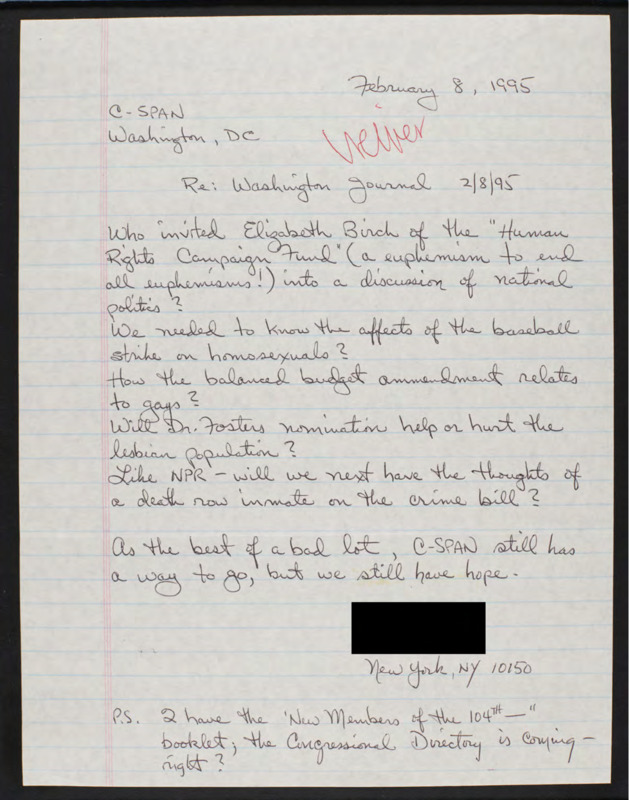 February 8, 1995
C-SPAN
Washington, DC
viewer
Re: Washington Journal 2/8/95
Who invited Elizabeth Birch of the "Human
Rights Campaign Fund" (a euphemism to end
all euphemisms!) into a discussion of national
politics?
We needed to know the affects of the baseball
strike on homosexuals?
How the balanced budget ammendment relates
to gays?
Will Dr. Fosters nomination help or hurt the
lesbian population?
Like NPR - will we next have the thoughts of
a death row inmate on the crime bill?
As the best of a bad lot, C-SPAN still has
a way to go, but we still have hope.
New York, NY 10150
P.S. I have the 'New Members of the 104TH—"
booklet; the Congressional Directory is coming -
right?